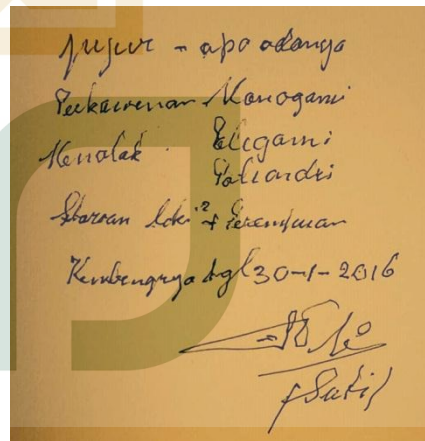 jujur - apa adanya
Perkawinan Monogami
Menolak Poligami
Poliandri
Setaraan laki² + Perempuan
Kembangnya tgl 30-1-2016